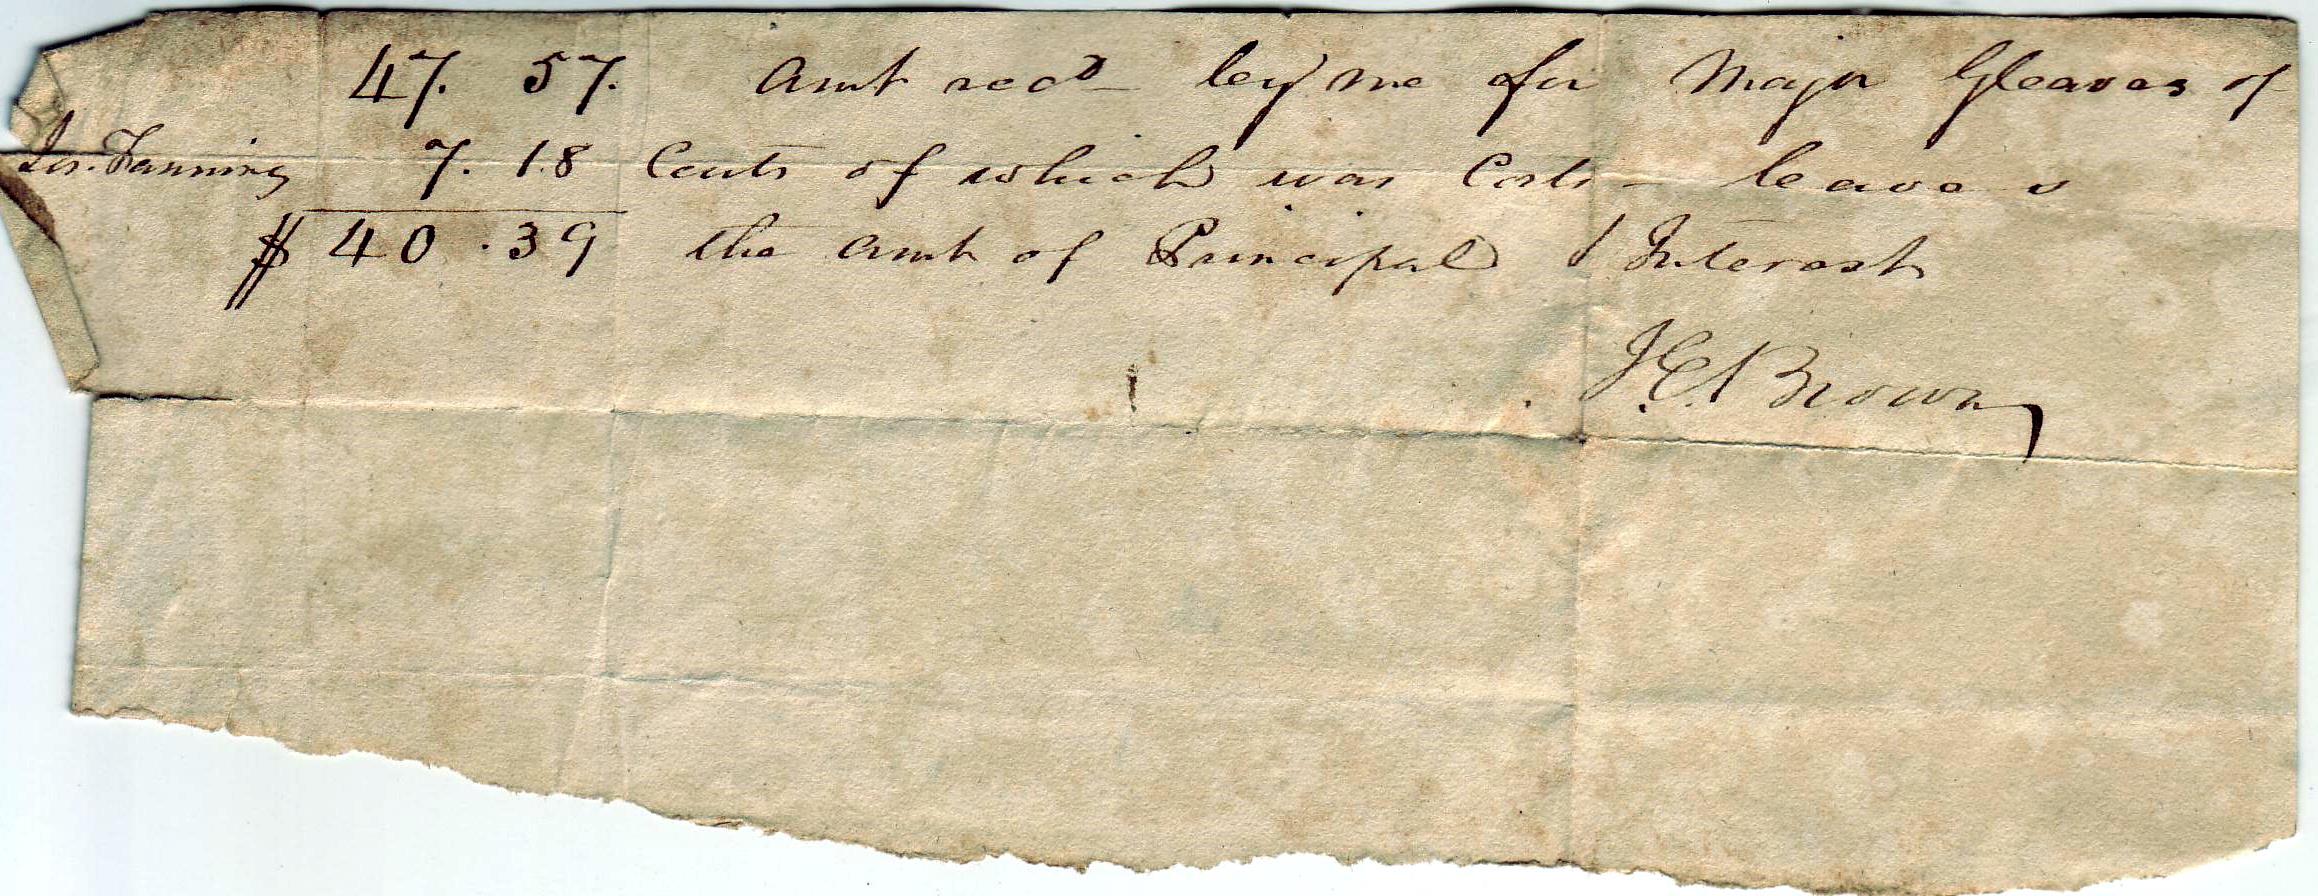 47. 57. Amt recd by me for Major Gleaves of
Jos. Fanning 7. 18 Cents of which was Costs - leaves
$ 40 . 39 the amt of Principal & Interest
J. C. Brown